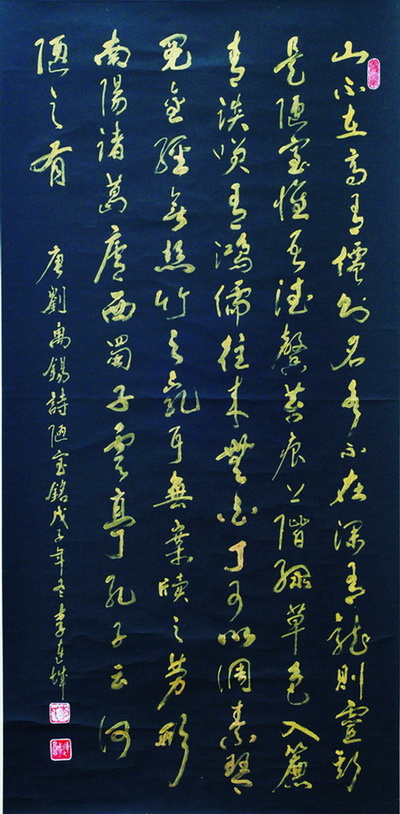 山不在高有僊則名水不在深有龍則靈斯
是陋室惟吾德馨苔痕上階綠草色入簾
青談笑有鴻儒往來無白丁可以調素琴
閱金經無絲竹之亂耳無案牘之勞形
南陽諸葛廬西蜀子雲亭孔子云何
陋之有
唐劉禹錫詩陋室銘戊子年冬李